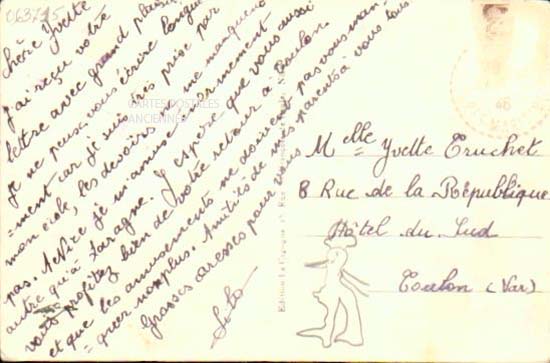 063715
Chère Yvette
J'ai reçu votre
lettre avec grand plaisir
Je ne peux vous écrire longue
=ment car je suis très prise par
mon école, les devoirs me manquent
pas. A Nice je m'amuse énormément
autre qu'à Laragne. J'espère que vous aussi
vous profitez bien de votre retour à Toulon
et que les amusements ne doivent pas vous man-
=quer non plus. Amitiés de mes parents à vous tous
Grosses caresses pour vous
CARTES POSTALES
ANCIENNES
46
Melle Yvette Truchet
8 Rue de la République
Hôtel du Sud
Toulon (Var)